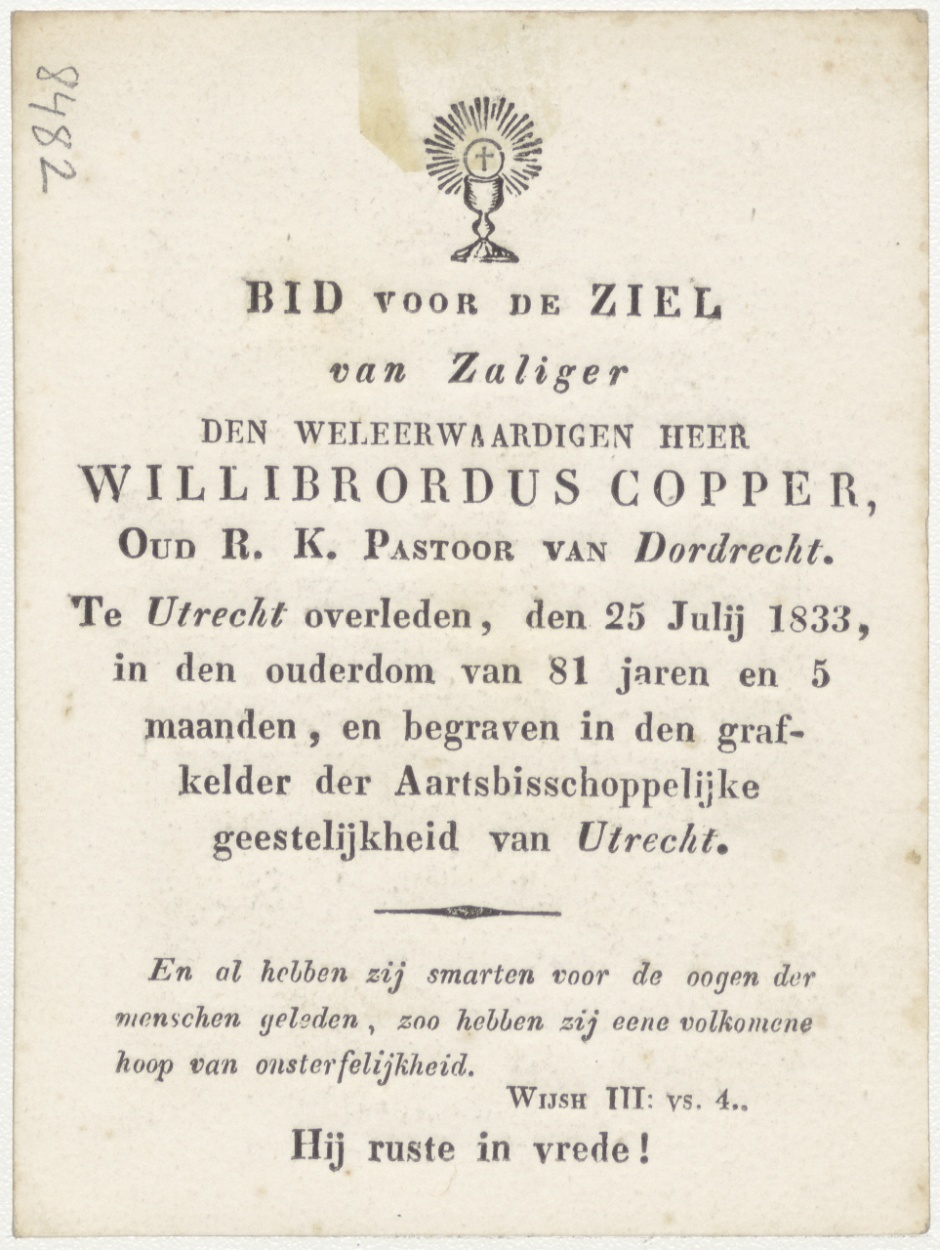 8482
BID VOOR DE ZIEL
van Zaliger
DEN WELEERWAARDIGEN HEER
WILLIBRORDUS COPPER,
OUD R. K. PASTOOR VAN Dordrecht.
Te Utrecht overleden, den 25 Julij 1833,
in den ouderdom van 81 jaren en 5
maanden, en begraven in den graf-
kelder der Aartsbisschoppelijke
geestelijkheid van Utrecht.
En al hebben zij smarten voor de oogen der
menschen geleden, zoo hebben zij eene volkomene
hoop van onsterfelijkheid.
WIJSH III: vs. 4..
Hij ruste in vrede!